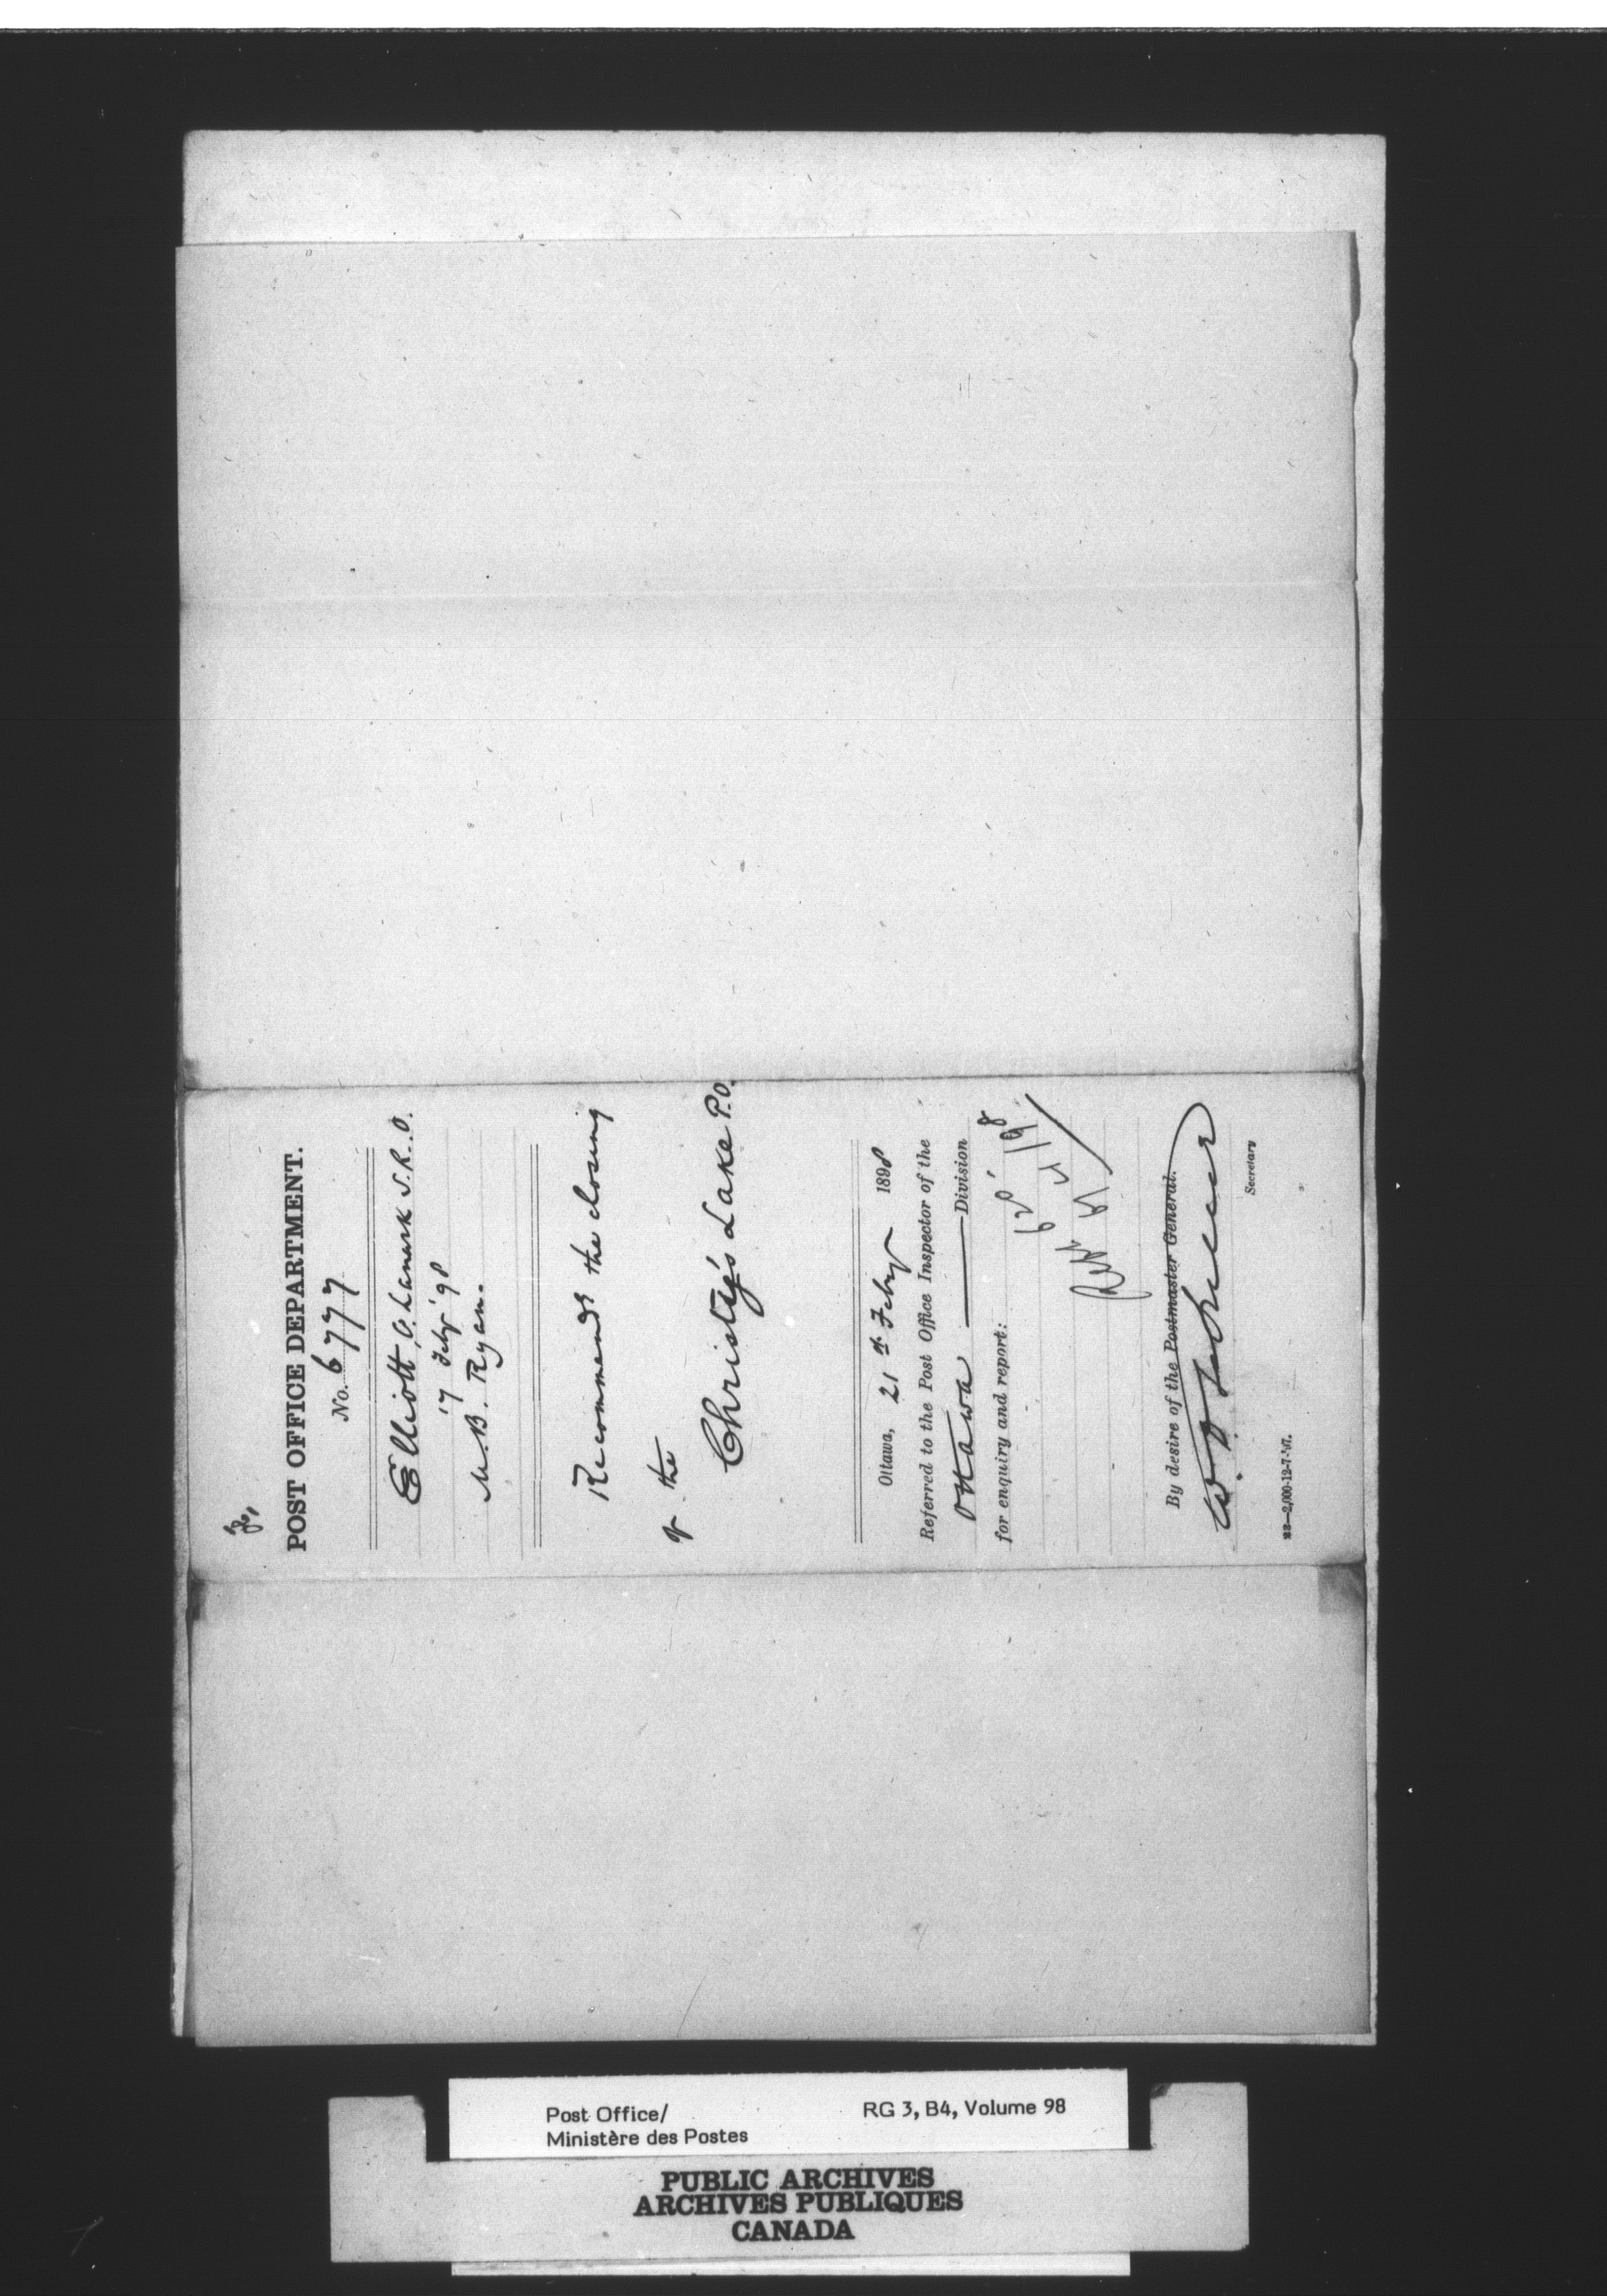 POST OFFICE DEPARTMENT.
No. 6777
Elliott, O. Lanark S.R. O.
17 Feby '98
M.B. Ryan.
Recommends the closing
of the
Christy's Lake P.O.
Ottawa, 21st Feby 1898
Referred to the Post Office Inspector of the
Ottawa Division
for enquiry and report:
By desire of the Postmaster General.
Secretary
22—2,000-12-7-'97.
Post Office/
Ministère des Postes
RG 3, B4, Volume 98
PUBLIC ARCHIVES
ARCHIVES PUBLIQUES
CANADA